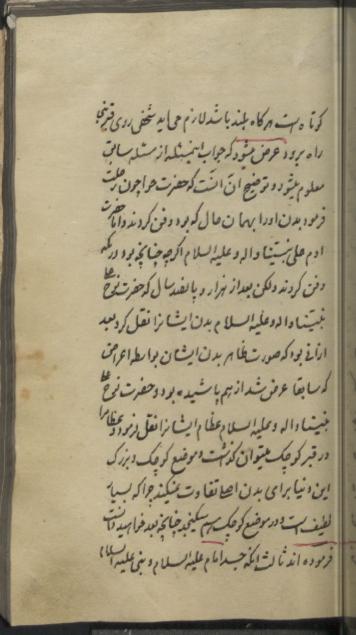 کوتاه است هرگاه بلند باشد لازم می‌اید شخص روی قبر
راه برود عرض میشود که جواب اینمسئله از مسئله سابق
معلوم میشود و توضیح ان انست که حضرت حوا چون رحلت
فرمود بدن اورا بهمان حال که بود دفن کردند و اما حضرت
ادم علی نبینا و اله و علیه السلام اگرچه چنانچه بود در مکه
دفن کردند ولکن بعد از هزار و پانصد سال که حضرت نوح علی
نبینا و اله و علیه السلام بدن ایشانرا نقل کرد بعد
ازانی بود که صورت ظاهر بدن ایشان بواسطه اعراض
که سابقا عرض شد از هم پاشیده بود و حضرت نوح علی
نبینا و اله و علیه السلام عظام ایشانرا نقل فرمود و عظام را
در قبر کوچک میتوان گذاشت و موضع کوچک و بزرگ
این دنیا برای بدن اصلی تفاوت نمیکند چرا که بسیار
لطیف است و در موضع کوچک هم میگنجد چنانچه بعد خواهید دانست
فرموده اند ثالث انکه جسد امام علیه السلام و نبی علیه السلام